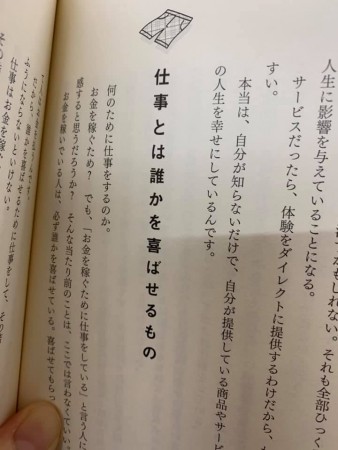 かもしれない。それも全部ひっく
人生に影響を与えていることになる。
サービスだったら、体験をダイレクトに提供するわけだから、
すい。
本当は、自分が知らないだけで、自分が提供している商品やサービ
の人生を幸せにしているんです。
仕事とは誰かを喜ばせるもの
何のために仕事をするのか。
お金を稼ぐため？ でも、「お金を稼ぐために仕事をしている」と言う人に
感すると思うだろうか？ そんな当たり前のことは、ここでは言わなくていい。
お金を稼いでいる人は、必ず誰かを喜ばせている。喜ばせてもらっ
だから、誰かを喜ばせるために仕事をして、その
ふうにならないといけない。
仕事はお金を稼